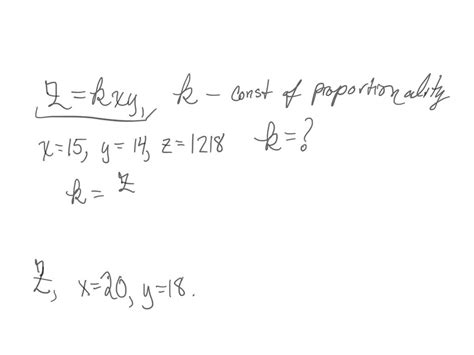 z = kxy, k – const of proportionality
x=15, y=14, z=1218 k=?
k = z
z, x=20, y=18.